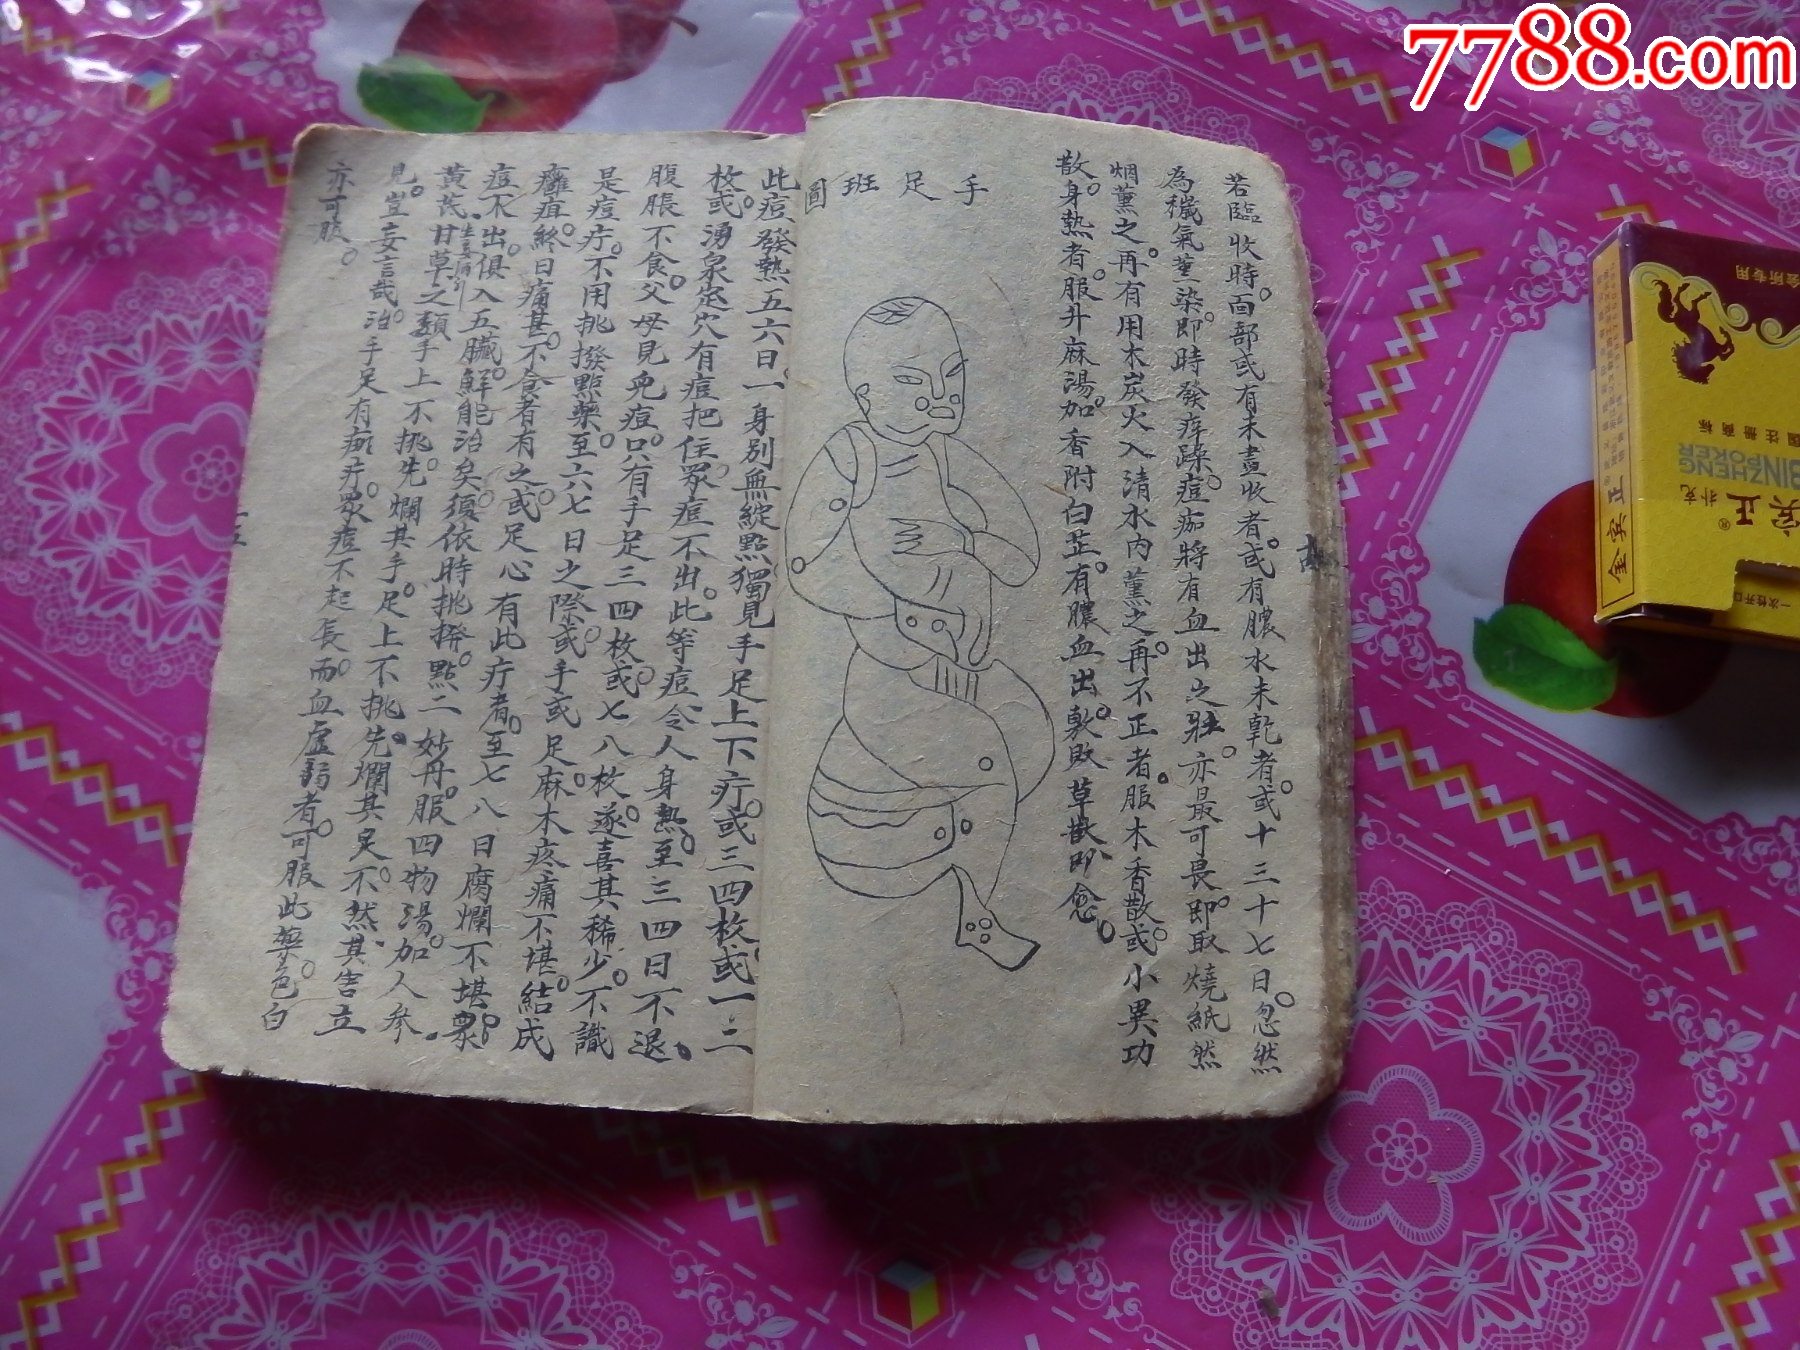 7788.com
若臨收時。面部或有未盡收者。或有膿水未乾者。或十三十七日。忽然
為穢氣薰染。即時發痒躁。痘痂將有血出之壯。亦最可畏。即取燒紙然
烟薰之。再有用木炭火入清水内薰之。再不正者。服木香散。或小異功
散。身熱者。服升麻湯。加香附白芷。有膿血出。敷敗草散。即愈。
手足班圖
此痘發熱五六日。一身別無綻點。獨見手足上下疔。或三四枚。或一二
枚。或湧泉㝎穴有痘把住。眾痘不出。此等痘。令人身熱。至三四日不退。
腹脹不食。父母見免痘。只有手足三四枚。或七八枚。遂喜其稀少。不識
是痘疔。不用挑撥點藥。至六七日之際。或手或足。麻木疼痛不堪。結成
癰疽。終日痛甚。不食者有之。或足心有此疔者。至七八日腐爛不堪。眾
痘不出。俱入五臟。鮮能治矣。須依時挑撥。點二妙丹。服四物湯。加人參
黃芪。甘草之類。手上不挑。先爛其手。足上不挑。先爛其足。不然其害立
見。豈妄言哉。治手足有疔。眾痘不起長。而血虛弱者。可服此藥。色白
亦可服。
一五
金宾正
宾正
扑克
BINZHENG
POKER
国注册商标
会所专用
一次性开口